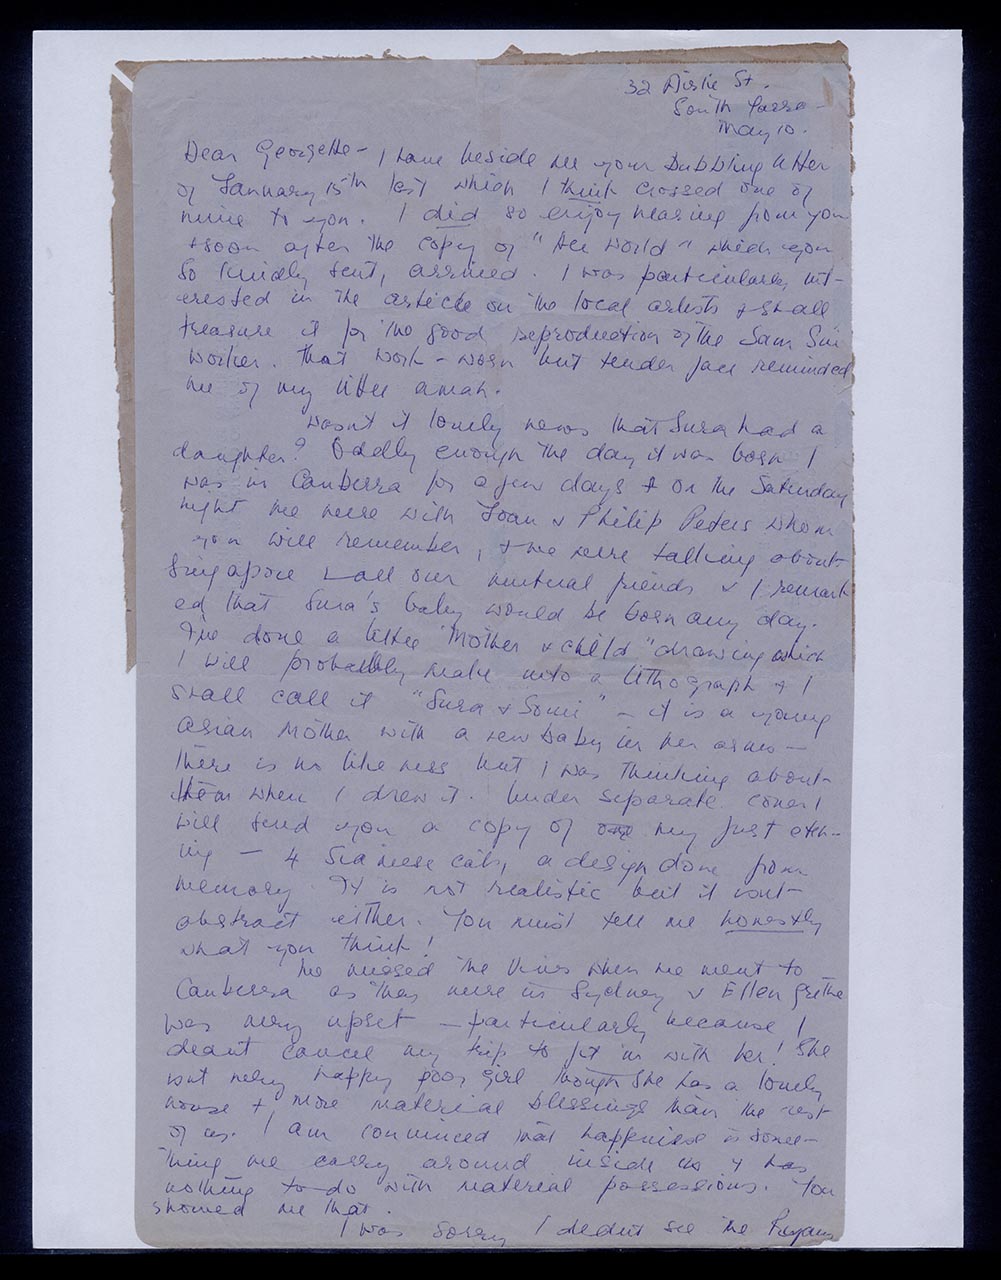 32 Airlie St.
South Yarra –
May 10.
Dear Georgette – I have beside me your bubbling letter
of January 15th last which I think crossed one of
mine to you. I did so enjoy hearing from you
& soon after the copy of "Her World" which you
so kindly sent, arrived. I was particularly int-
erested in the article on the local artists & shall
treasure it for the good reproduction of the Sam Sui
worker. That work-worn but tender face reminded
me of my little amah.
Wasn't it lovely news that Sura had a
daughter? Oddly enough the day it was born I
was in Canberra for a few days & on the Saturday
night we were with Joan & Philip Peters whom
you will remember, & we were talking about
Singapore & all our mutual friends & I remark
ed that Sura's baby would be born any day.
I've done a little "Mother & child" drawing which
I will probably make into a lithograph & I
shall call it "Sura & " – it is a young
asian Mother with a new baby in her arms –
there is no likeness but I was thinking about
them when I drew it. Under separate cover I
will send you a copy of my first etch-
ing – 4 Siamese cats, a design done from
memory. It is not realistic but it isn't
abstract either. You must tell me honestly
what you think!
We missed the when we went to
Canberra as they were in Sydney & Ellen Grethe
was very upset – particularly because I
didn't cancel my trip to fit in with her! She
isn't very happy poor girl though she has a lovely
house & more material blessings than the rest
of us. I am convinced that happiness is some-
thing we carry around inside us & has
nothing to do with material possessions. You
showed me that.
I was sorry I didn't see the